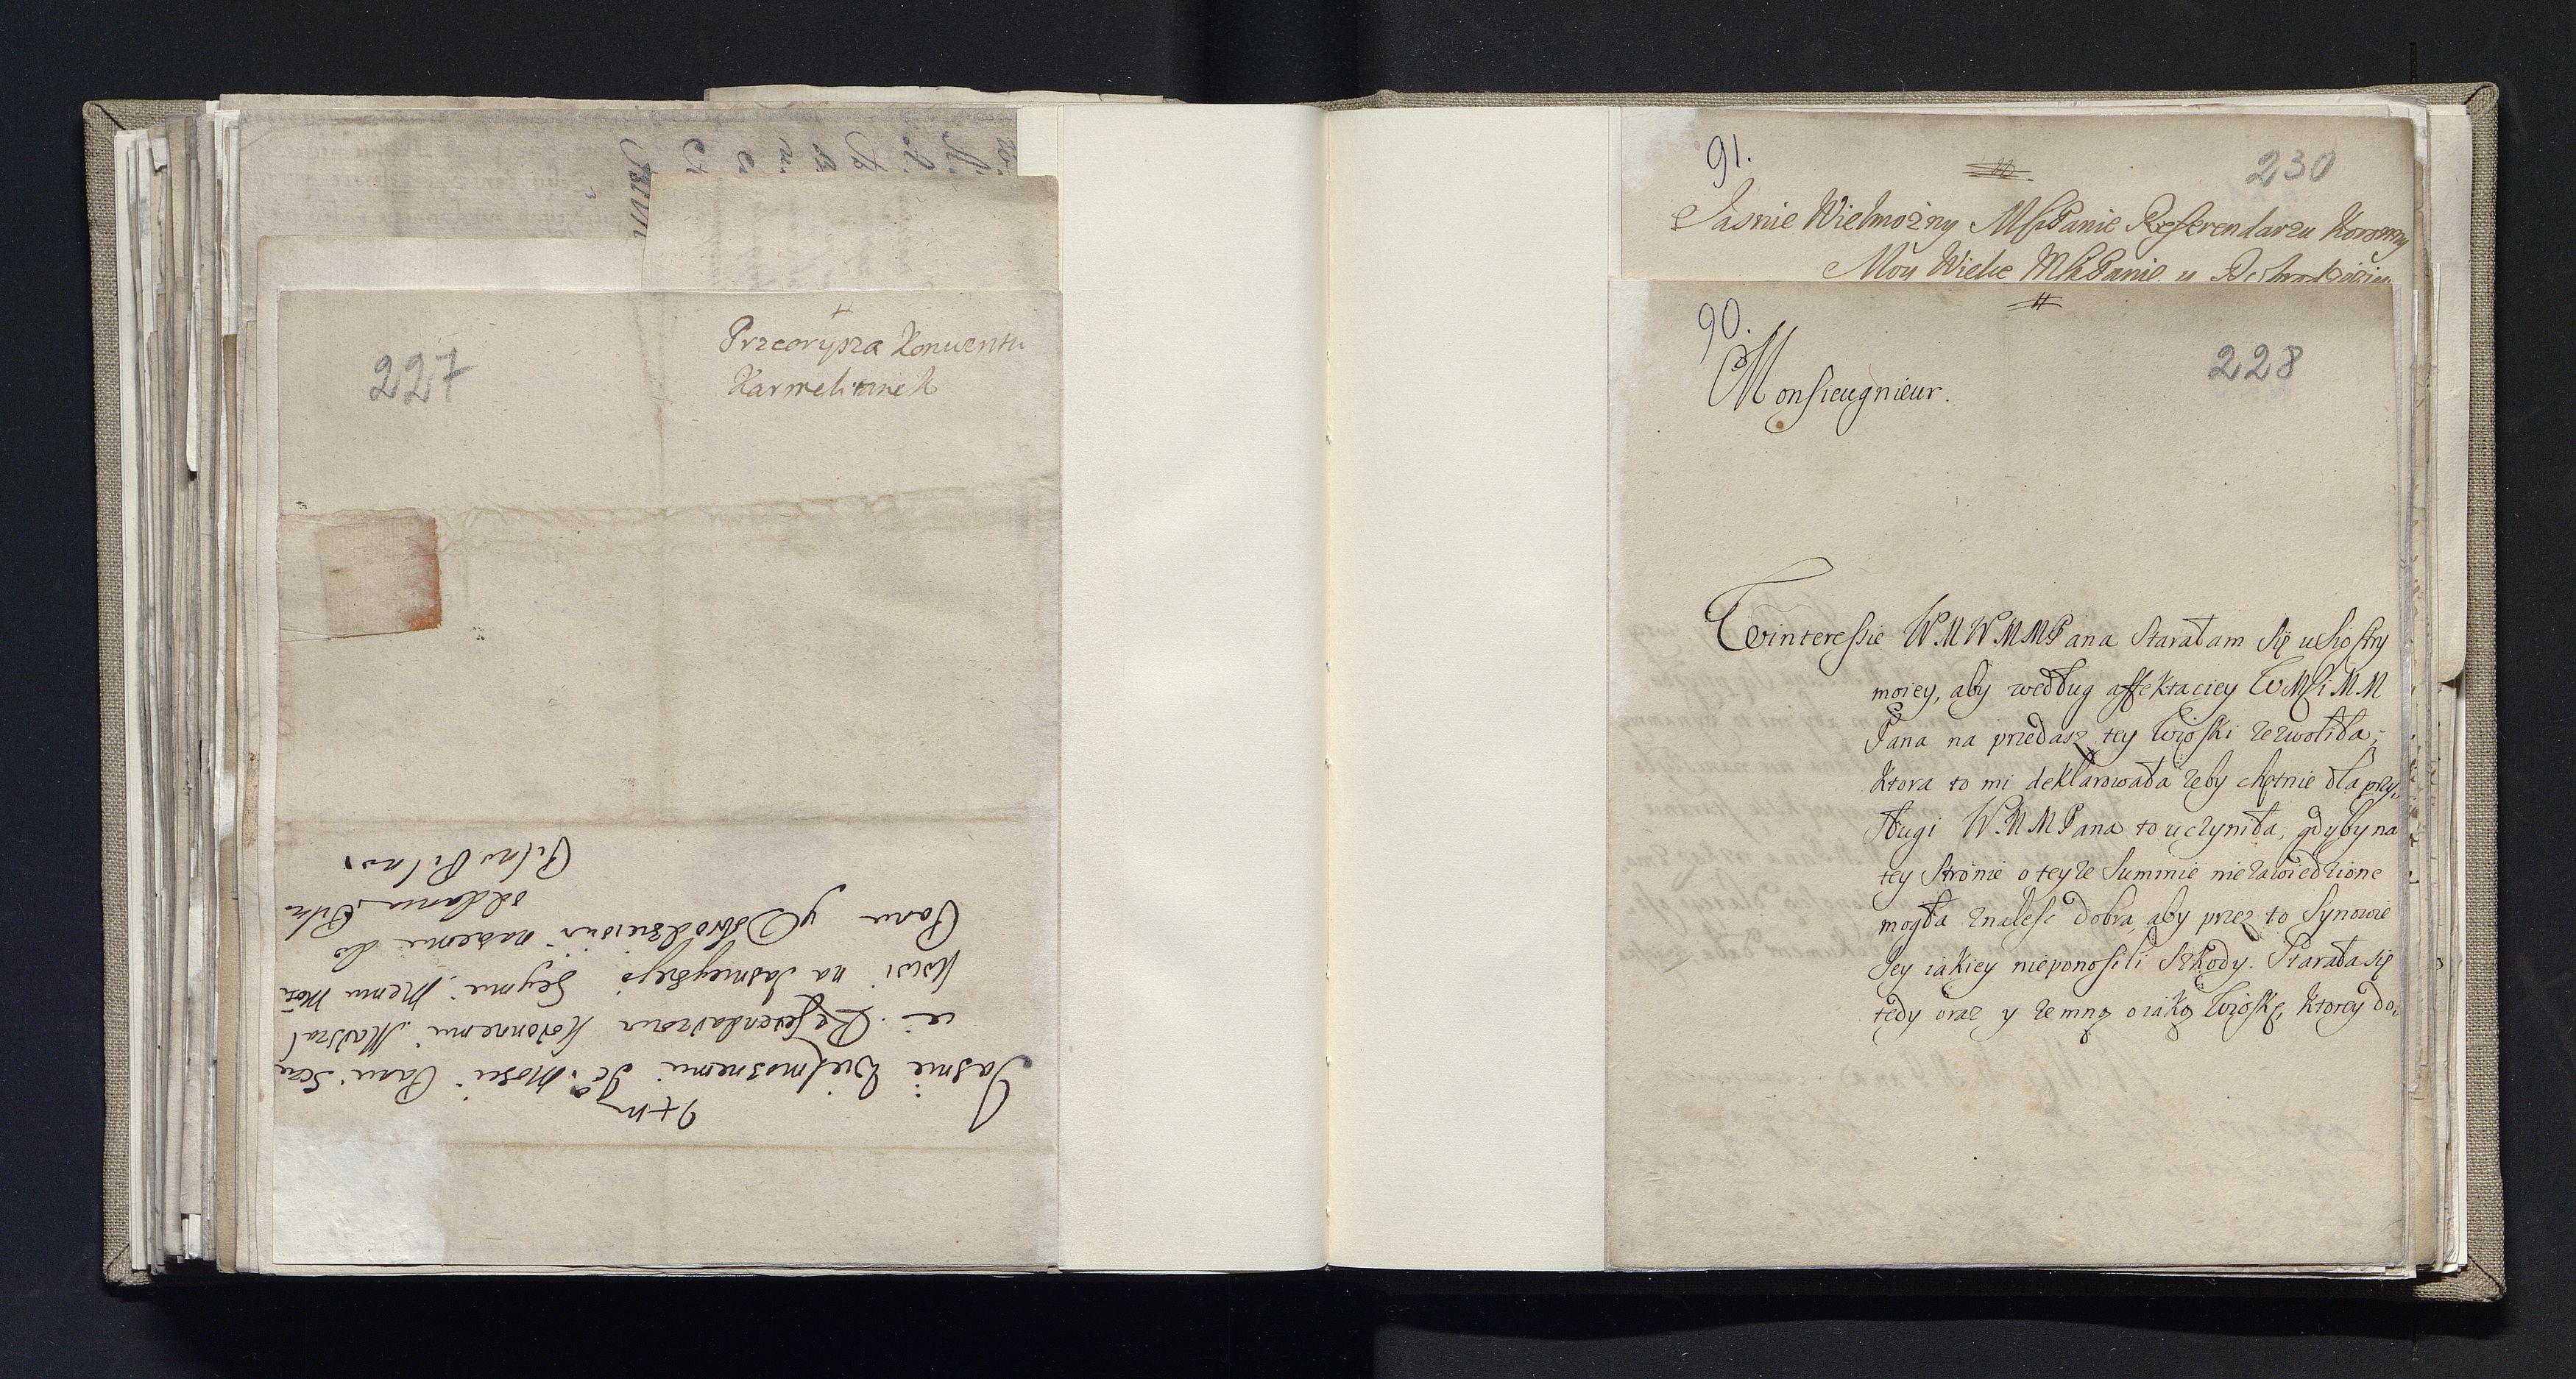 227
Przeorysza Konwentu
Karmelitanek
Jasnie Wielmoznemu Jc Mosci Panu
Referendarzowi Koronnemu Marszał
kowi na Jasnieyszego Seymu Memu Mci
Panu y Dobrodzieiowi nasemu do
oddania
Cito Cito
91.
230
Jasnie Wielmożny MśPanie Referendarzu Koronny
Moy Wielce
90.
228
Monsieugnieur.
Winteressie W.M W.M M Pana Starałam Się u Siostry
moiey, aby według affektaciey WMśi M M
Pana na przedasz tey Wioski zezwoliła;
ktora to mi deklarowała żeby chętnie dla przy,,
sługi W.M M Pana to uczyniła, gdyby na
tey Stronie o teyże Summie niezawiedzione
mogła znaleśc dobra, aby przez to Synowie
Jey iakiey nieponosili Szkody. Starała się
tedy oraz y ze mną o iaką Wioskę, ktorey do,,